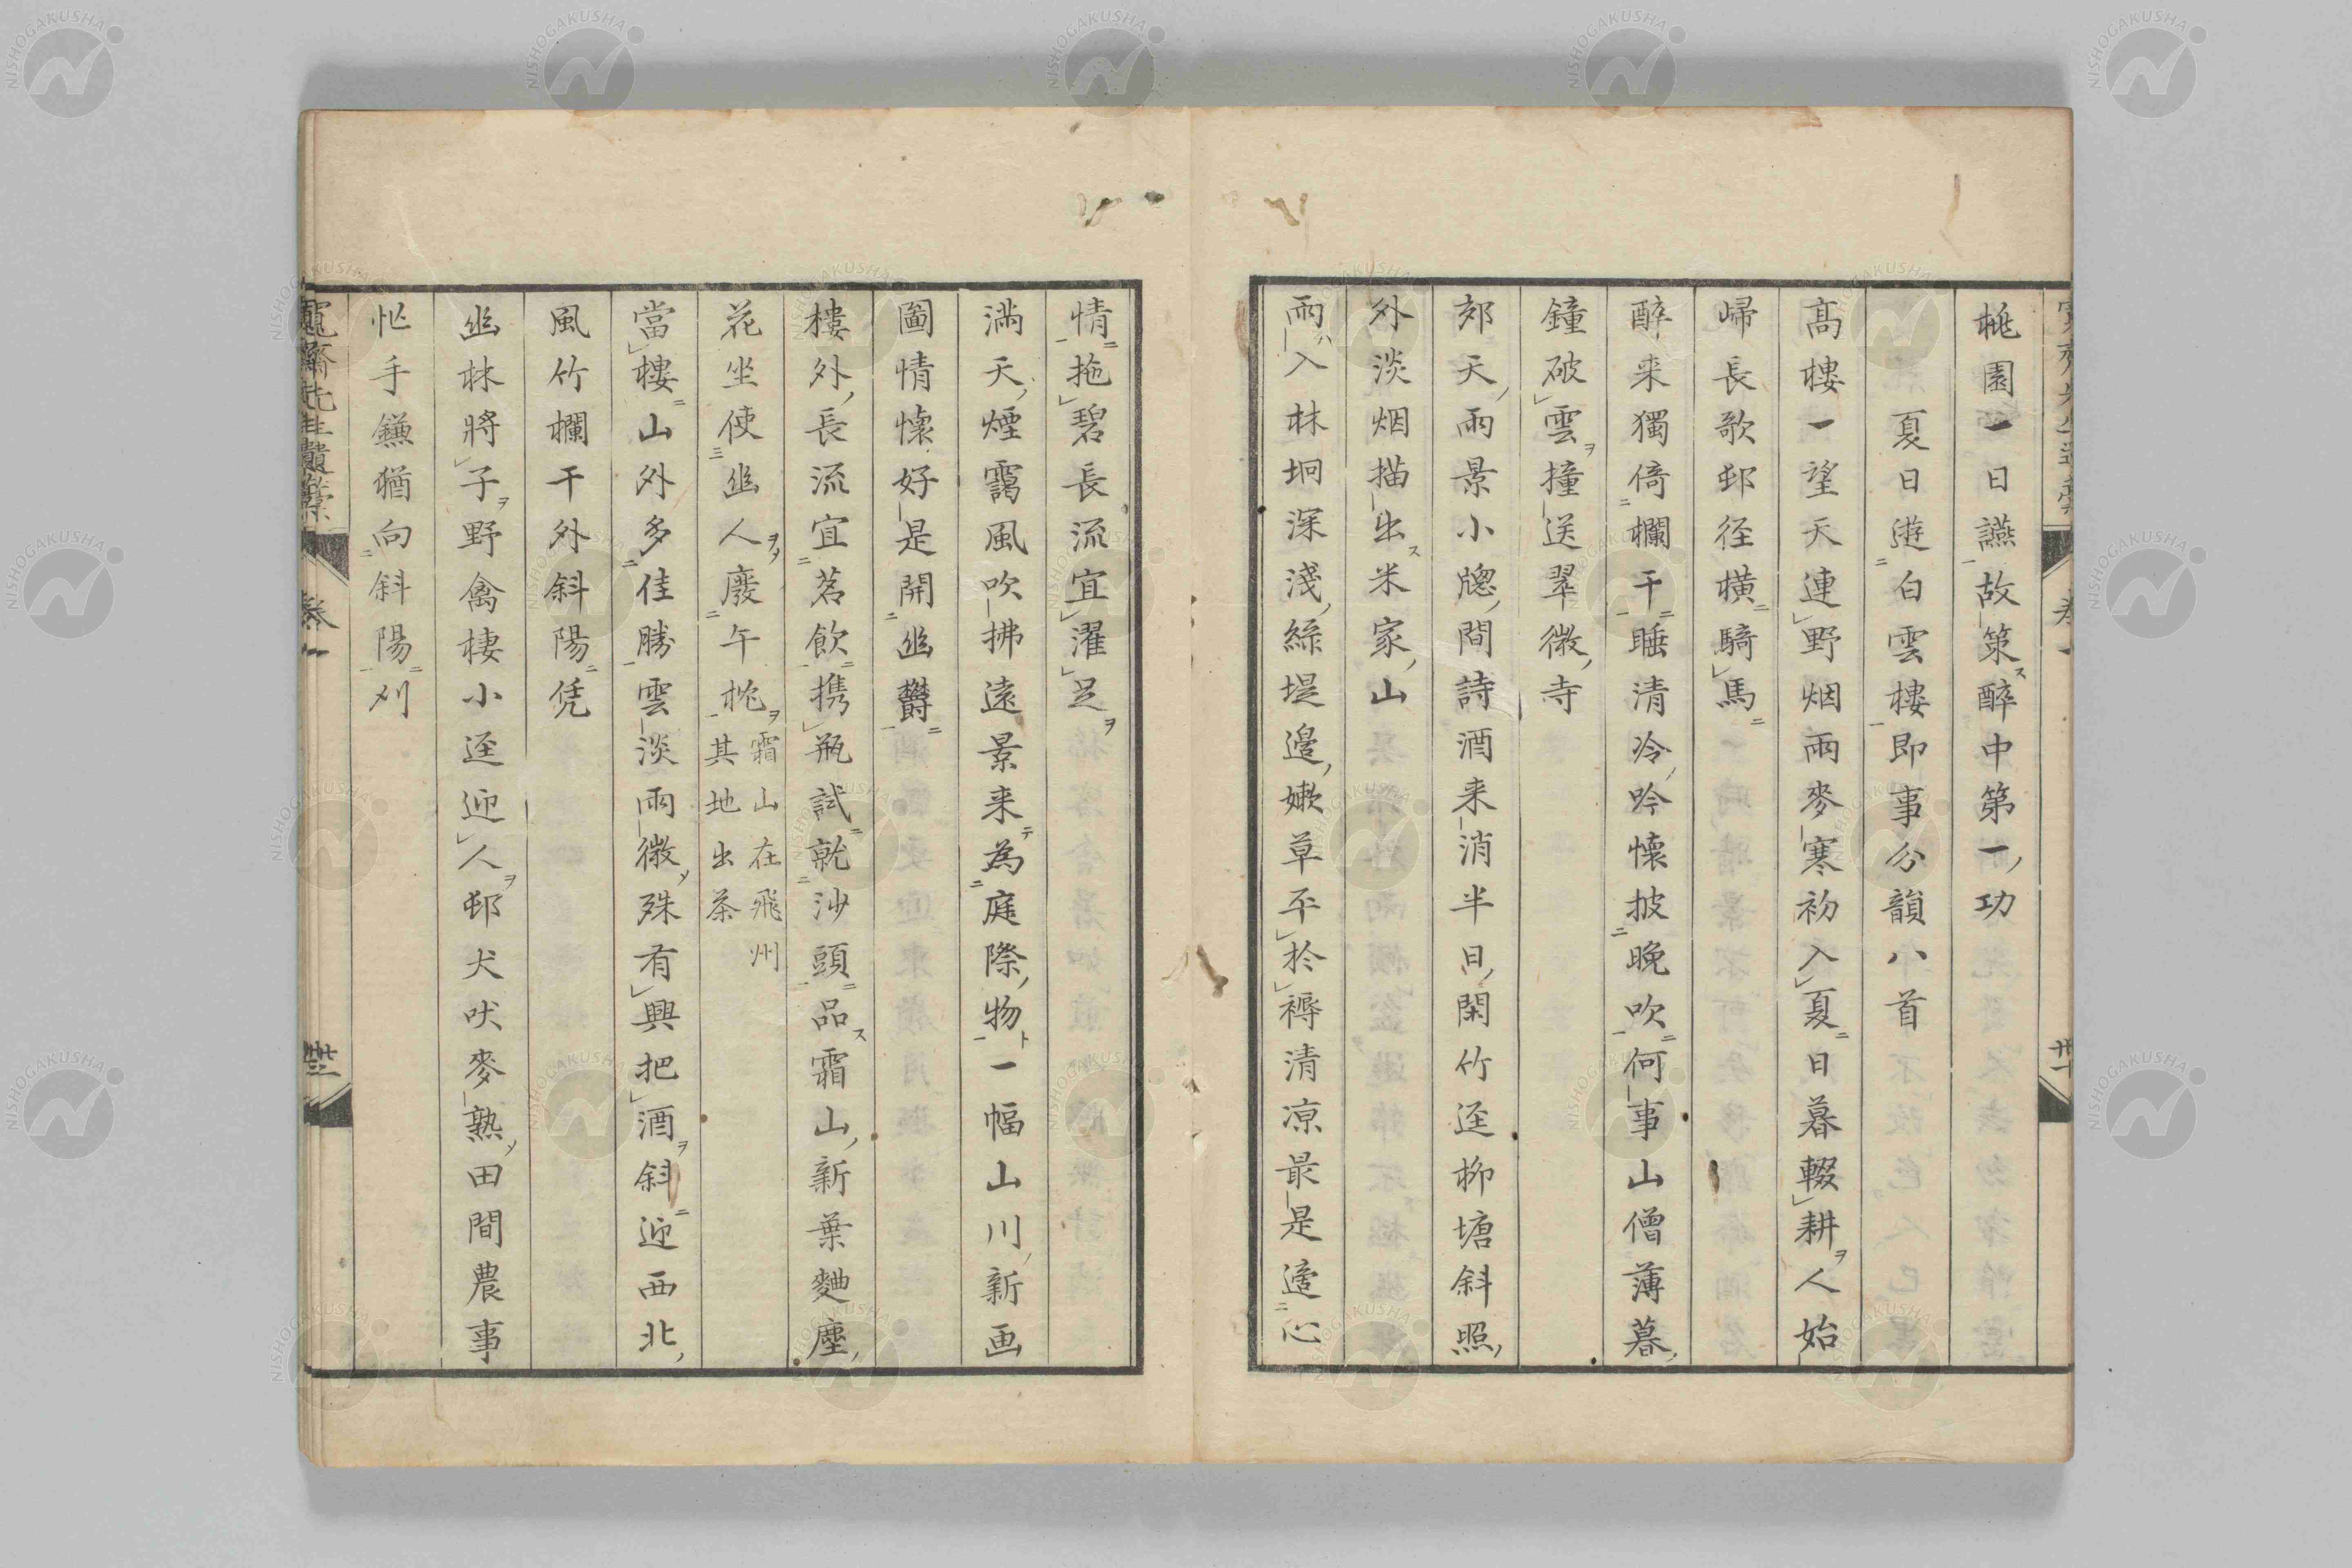 桃園一日讌故策醉中第一功
夏日遊白雲樓即事分韻八首
高樓一望天連野烟雨麥寒初入夏日暮輟耕人始
歸長歌邨径橫騎馬
醉来獨倚欄干睡清冷吟懷披晚吹何事山僧薄暮
鐘破雲撞送翠微寺
郊天雨景小牕間詩酒来消半日閑竹逕柳塘斜照
外淡烟描出米家山
雨入林坰深淺絲堤邊嫩草平於褥清凉最是適心
情拖碧長流宜濯足
満天煙靄風吹拂遠景来為庭際物一幅山川新画
圖情懷好是開幽欝
樓外長流宜茗飲携瓶試就沙頭品霜山新葉麯塵
花坐使幽人廢午枕霜山在飛州其地出茶
當樓山外多佳勝雲淡雨微殊有興把酒斜迎西北
風竹欄干外斜陽凭
幽林將子野禽棲小逕迎人邨犬吠麥熟田間農事
忙手鎌猶向斜陽刈
卷一
NISHOGAKUSHA